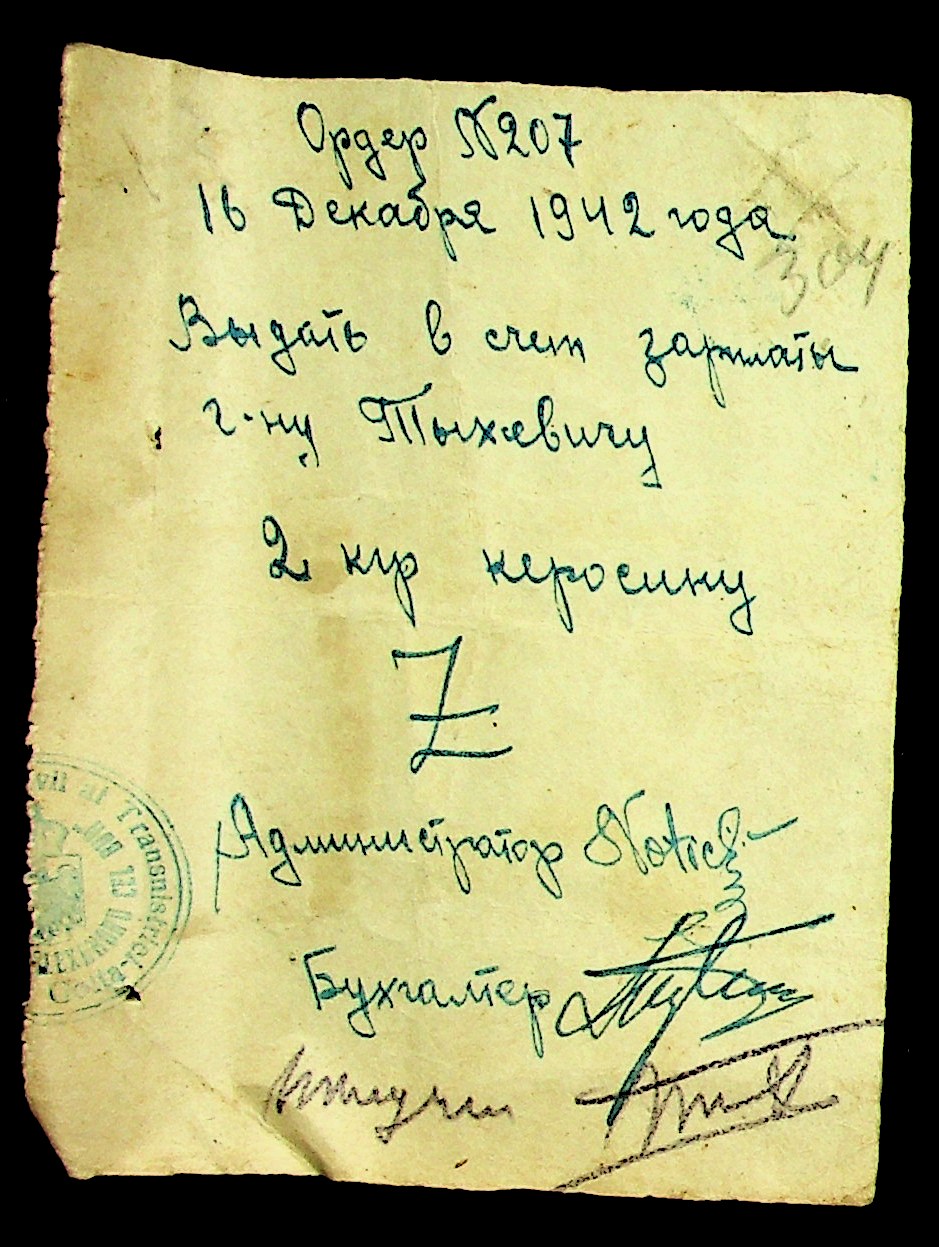 Ордер N207
16 Декабря 1942 года
304
Выдать в счет зарплаты
г-ну Тыхевичу
2 кгр керосину
Z
Администратор
Бухгалтер
al Transnistriei